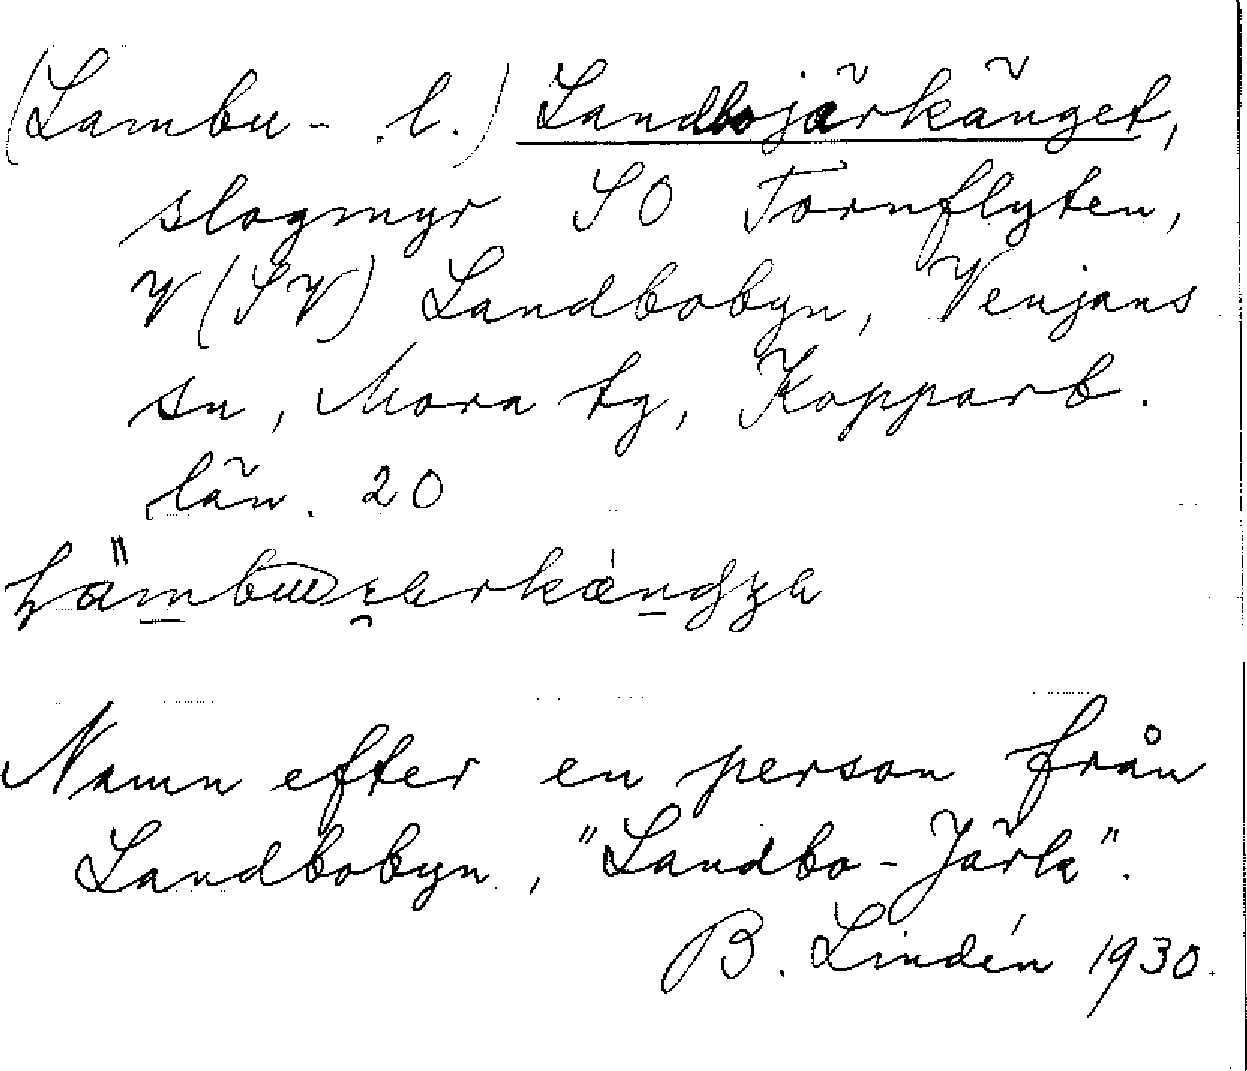 (Lambu- l.) Landbojärkänget,
slogmyr SO Tornflyten,
V (SV) Landbobyn, Venjans
sn, Mora tg, Kopparb.
län. 20
Namn efter en person från
Landbobyn, "Landbo-Järk".
B. Lindén 1930.